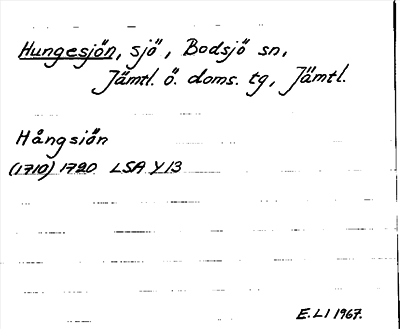 Hungesjön, sjö, Bodsjö sn,
Jämtl. ö. doms. tg, Jämtl.
Hångsiön
(1710) 1720 LSA Y13
E.LI 1967.